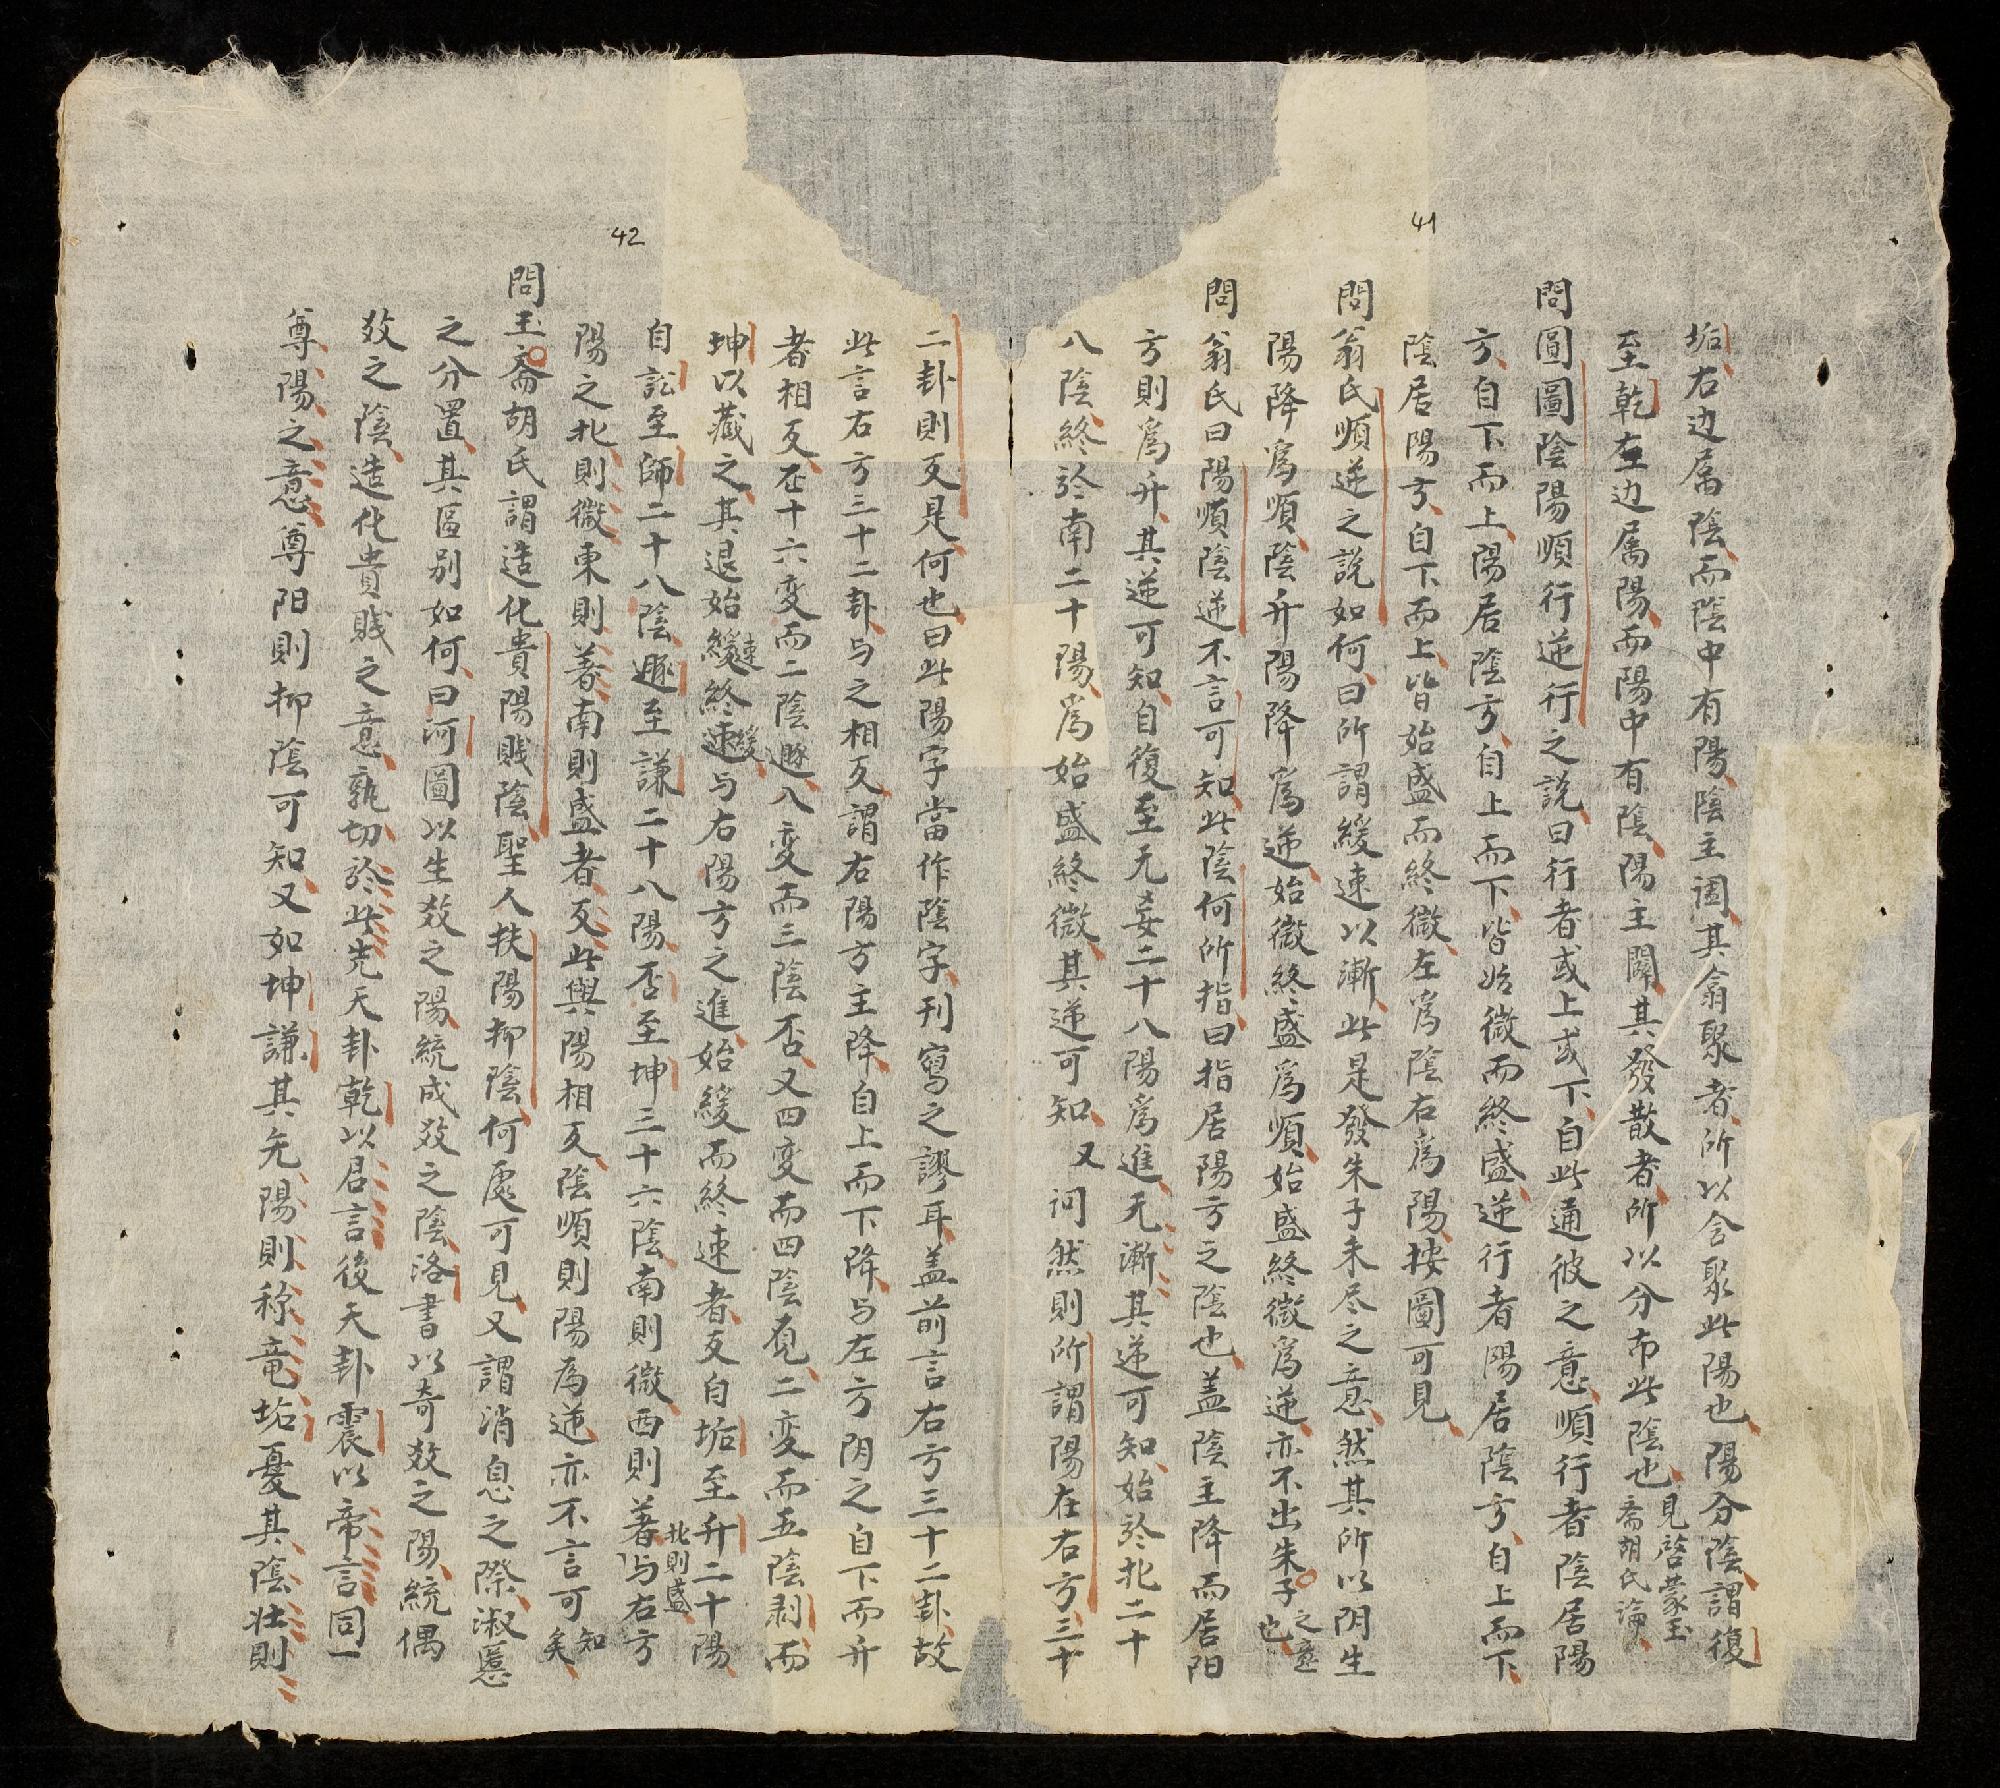 41
垢右边属陰而陰中有陽陰主闔其翕聚者所以含聚此陽也陽分陰謂復
至乾在边属陽而陽中有陰陽主闢其發散者所以分布此陰也見啓蒙玉斋胡氏論
問圓圖陰陽順行逆行之說曰行者或上或下自此通彼之意順行者陰居陽
方自下而上陽居陰方自上而下皆始微而終盛逆行者陽居陰方自上而下
陰居陽方自下而上皆始盛而終微左為陰右為陽按圖可見
問翁氏順逆之說如何曰所謂緩速以漸此是發朱子未尽之意然其所以阴生
陽降為順陰升陽降為逆始微終盛為順始盛終微為逆亦不出朱子之意也
問翁氏曰陽順陰逆不言可知此陰何所指曰指居陽方之陰也盖陰主降而居阳
方則為升其逆可知自復至无妄二十八陽為進无漸其逆可知始於北二十
八陰終於南二十陽為始盛終微其逆可知又问然則所謂陽在右方三十
二卦則反是何也曰此陽字當作陰字刊寫之謬耳盖前言右方三十二卦故
此言右方三十二卦与之相反謂右陽方主降自上而下降与左方阴之自下而升
者相反在十六変而二陰遯八変而三陰否又四変而四陰覌二変而五陰剥而
坤以藏之其退始緩速終速緩与右陽方之進始緩而終速者反自垢至升二十陽
自訟至師二十八陰遯至謙二十八陽否至坤三十六陰南則微西則著北則盛与右方
陽之北則微東則著南則盛者反此與陽相反陰順則陽為逆亦不言可知矣
42
問玉斎胡氏謂造化貴陽賎陰聖人扶陽抑陰何處可見又謂消息之際淑慝
之分置其區别如何曰河圖以生数之陽統成数之陰洛書以奇数之陽統偶
数之陰造化貴賎之意孰切於此先天卦乾以君言後天卦震以帝言同一
尊陽之意尊阳則抑陰可知又如坤謙其无陽則称竜垢憂其陰壮則